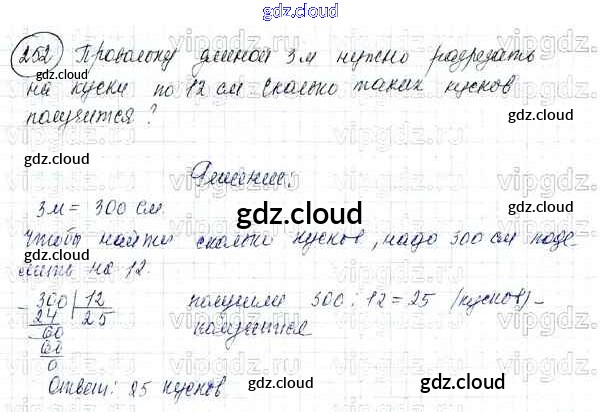 gdz.cloud
252 Проволоку длиной 3 м нужно разрезать
gdz.cloud gdz.cloud
на куски по 12 см. Сколько таких кусков
получится?
gdz.cloud gdz.cloud
Решение:
3 м = 300 см.
gdz.cloud
Чтобы найти сколько кусков, надо 300 см поде-
лить на 12.
300 | 12 получили 300 : 12 = 25 (кусков) –
24 25 получится
60
60
0
gdz.cloud gdz.cloud
Ответ: 25 кусков
gdz.cloud